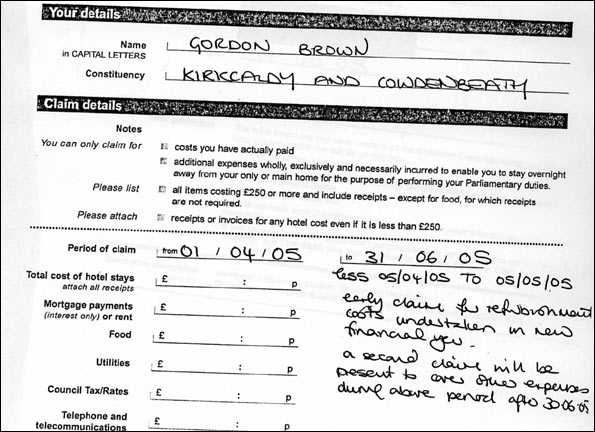 Your details
Name GORDON BROWN
in CAPITAL LETTERS
Constituency KIRKCALDY AND COWDENBEATH
Claim details
Notes
You can only claim for costs you have actually paid
additional expenses wholly, exclusively and necessarily incurred to enable you to stay overnight
away from your only or main home for the purpose of performing your Parliamentary duties.
Please list all items costing £250 or more and include receipts – except for food, for which receipts
are not required.
Please attach receipts or invoices for any hotel cost even if it is less than £250.
Period of claim from 01 / 04 / 05 to 31 / 06 / 05
less 05/04/05 TO 05/05/05
Total cost of hotel stays £ : p
attach all receipts
early claim for refurbishment
Mortgage payments £ : p
(interest only) or rent
costs undertaken in new
financial year.
Food £ : p
a second claim will be
Utilities £ : p
present to cover other expenses
during above period after 30.06.05
Council Tax/Rates £ : p
Telephone and £ : p
telecommunications